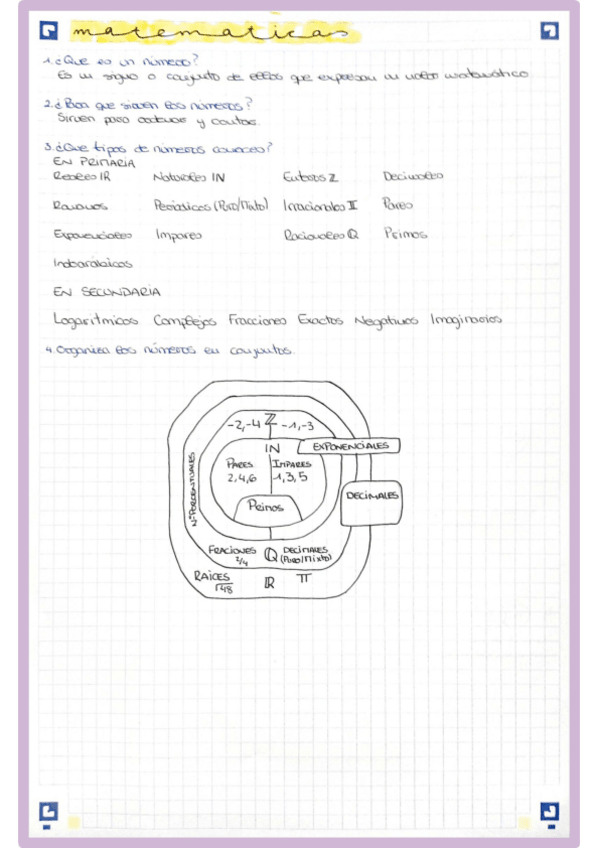 matematicas
1. ¿Que es un número?
Es un signo o conjunto de ellos que expresan un valor matemático
2. ¿Para que sirven los números?
Sirven para ordenar y contar.
3. ¿Que tipos de números conoces?
EN PRIMARIA
Reales IR Naturales IN Enteros Z Decimales
Romanos Periódicos (Puro/Mixto) Irracionales II Pares
Exponenciales Impares Racionales Q Primos
Indoarábicos
EN SECUNDARIA
Logarítmicos Complejos Fracciones Exactos Negativos Imaginarios
4. Organiza los números en conjuntos.
-2, -4 Z -1, -3
IN EXPONENCIALES
PARES IMPARES
2, 4, 6 1, 3, 5
DECIMALES
Primos
Nº PORCENTUALES
FRACIONES Q DECIMALES
2/4 (Puro/Mixto)
RAICES IR π
√48